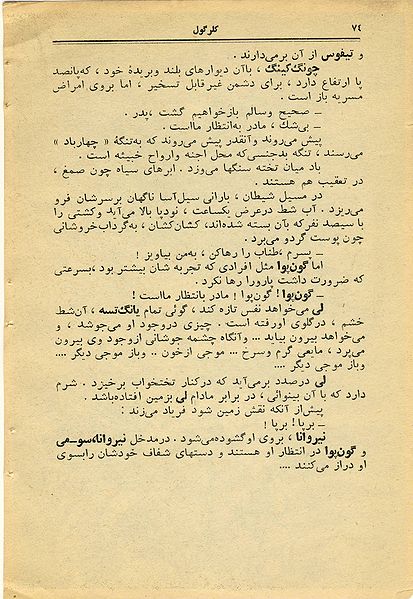 ۷٤
کلرگول
و تیفوس از آن برمی‌دارند .
چونگ‌کینگ ، باآن دیوارهای بلند وبریدهٔ خود ، که‌پانصد
پا ارتفاع دارد ، برای دشمن غیرقابل تسخیر ، اما بروی امراض
مسریه باز است .
ــ صحیح وسالم بازخواهیم گشت ،پدر .
ــ بی‌شك ، مادر به‌انتظار مااست .
پیش می‌روند وآنقدر پیش می‌روند که به‌تنگهٔ « چهارباد »
می‌رسند ، تنگه بدجنسی‌که محل اجنه وارواح خبیثه است .
باد میان تخته سنگها می‌وزد . ابرهای سیاه چون صمغ ،
در تعقیب هم هستند .
در مسیل شیطان ، بارانی سیل‌آسا ناگهان برسرشان فرو
می‌ریزد . آب شط درعرض یکساعت ، نودپا بالا می‌آید وکشتی را
با سیصد نفر که بآن بسته شده‌اند، کشان‌کشان ، به‌گرداب‌خروشانی
چون پوست گردو می‌برد .
ــ پسرم ،طناب را رهاکن ، به‌من بیاویز !
اما گون‌بوا مثل افرادی که تجربه شان بیشتر بود ،بسرعتی
که ضرورت داشت پارورا رها نکرد .
ــ گون‌بوا ! گون‌بوا ! مادر بانتظار مااست !
لی می‌خواهد نفس تازه کند ، گوئی تمام یانگ‌تسه ، آن‌شط
خشم ، درگلوی اورفته است . چیزی دروجود او می‌جوشد ، و
می‌خواهد بیرون بیاید ... وآنگاه چشمه جوشانی ازوجود وی بیرون
می‌پرد ، مایعی گرم وسرخ ... موجی ازخون .. وباز موجی دیگر ....
وباز موجی دیگر ....
لی درصدد برمی‌آید که درکنار تختخواب برخیزد . شرم
دارد که با آن بینوائی ، در برابر مادام لی بزمین افتاده‌باشد .
پیش‌از آنکه نقش زمین شود فریاد می‌زند :
ــ برپا ! برپا !
نیروانا ، بروی اوگشوده‌می‌شود . درمدخل نیروانا،سو-می
و گون‌بوا در انتظار او هستند و دستهای شفاف خودشان رابسوی
او دراز می‌کنند ....